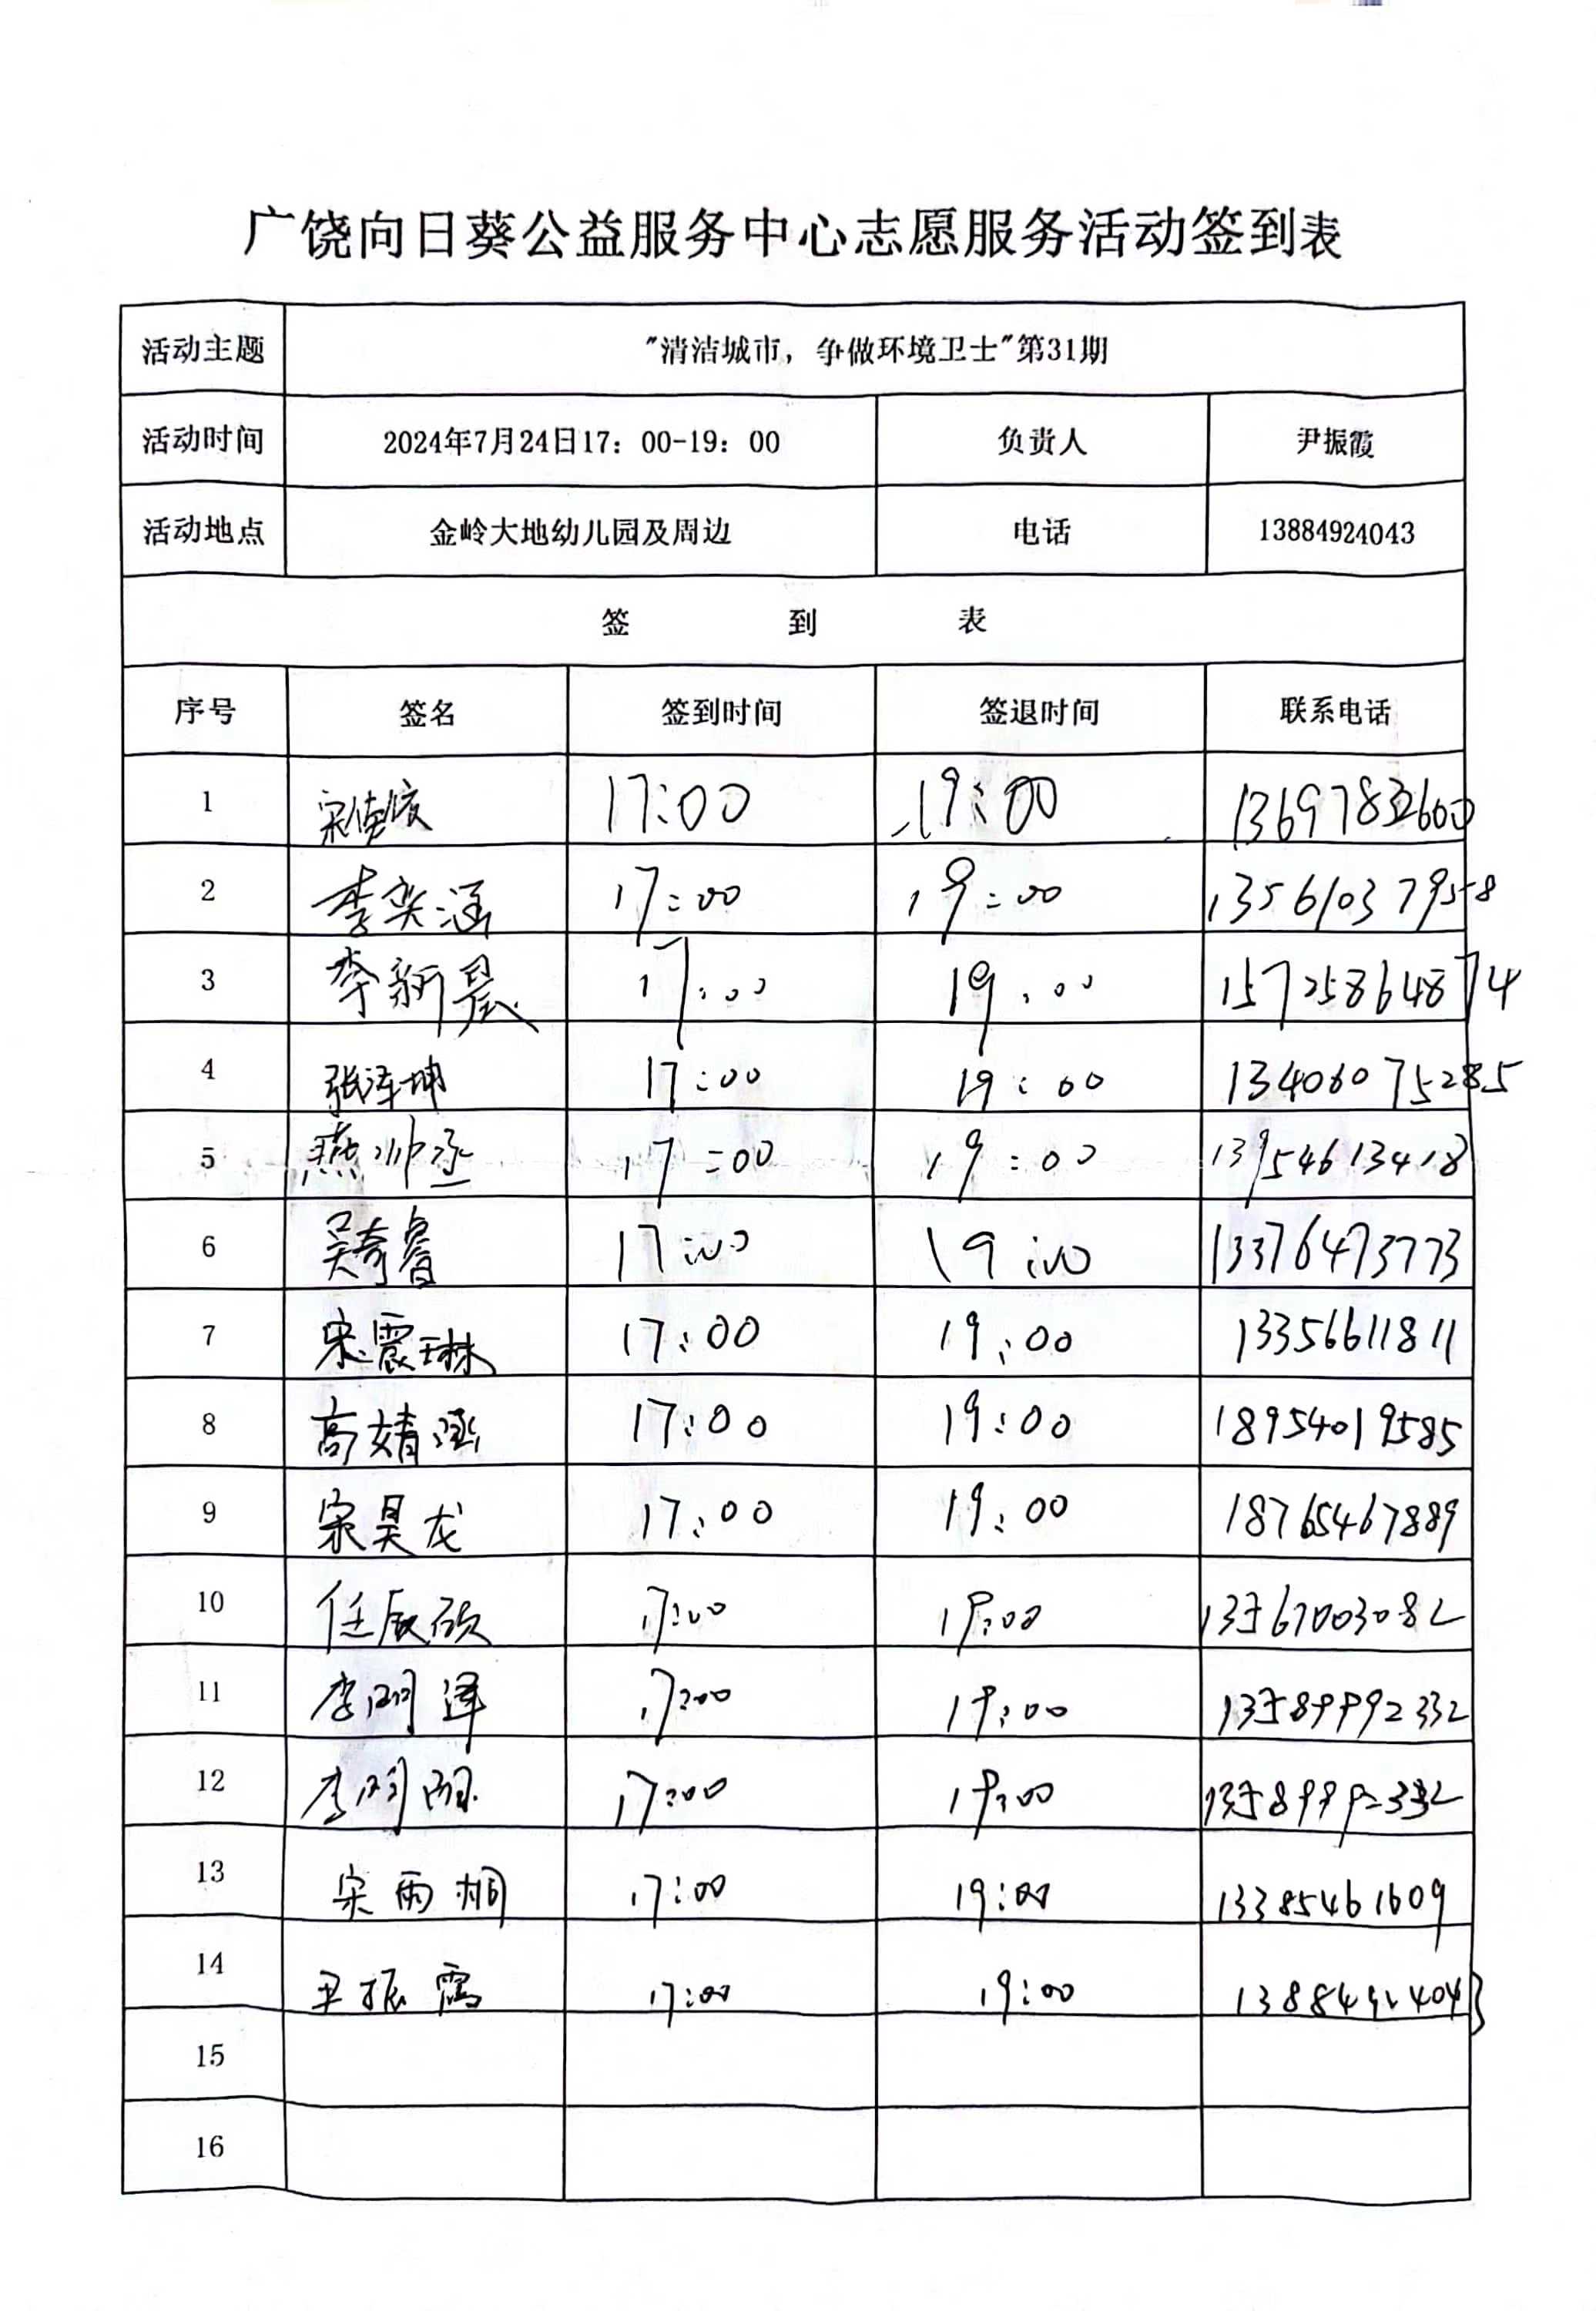 广饶向日葵公益服务中心志愿服务活动签到表
活动主题 "清洁城市，争做环境卫士"第31期
活动时间 2024年7月24日17：00-19：00 负责人 尹振霞
活动地点 金岭大地幼儿园及周边 电话 13884924043
签 到 表
序号 签名 签到时间 签退时间 联系电话
1 17:00 19:00
2 李奕涵 17:00 19:00 13561037958
3 李新晨 17:00 19:00 15725864874
4 张泽坤 17:00 19:00 13406075285
5 燕帅丞 17:00 19:00 13954613418
6 吴奇睿 17:00 19:00 13376473773
7 宋震琳 17:00 19:00 13356611811
8 高婧涵 17:00 19:00 18954019585
9 宋昊龙 17:00 19:00 18765467889
10 任辰硕 17:00 19:00 13567003082
11 李明泽 17:00 19:00 13589992332
12 李明 17:00 19:00 13589992332
13 宋雨桐 17:00 19:00 13385461609
14 尹振霞 17:00 19:00 13884924043
15
16